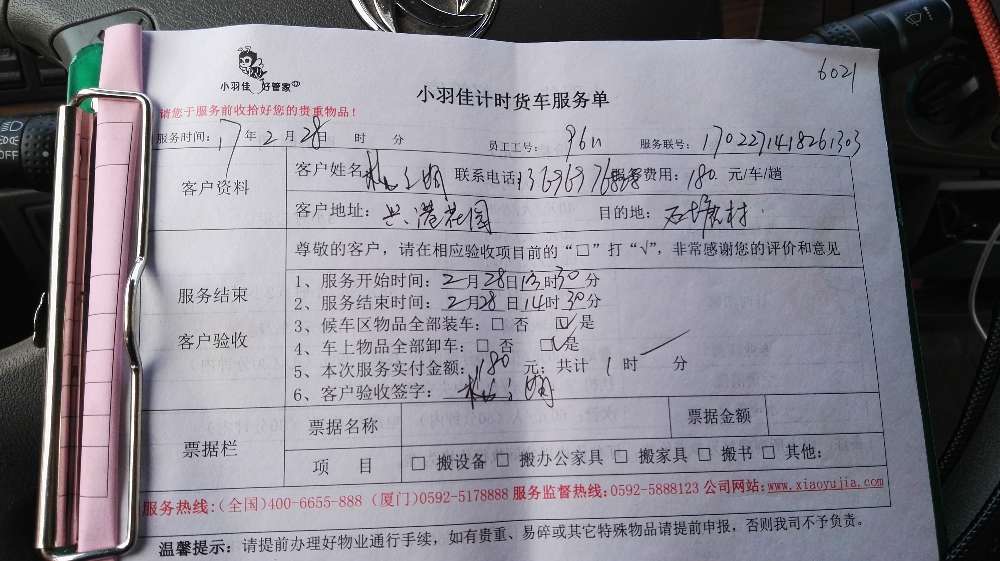 6021
小羽佳 好管家
小羽佳计时货车服务单
请您于服务前收拾好您的贵重物品！
服务时间：17年2月28日 时 分 员工工号： 服务联号：1702271418261303
客户资料
客户姓名 联系电话： 服务费用：180.元/车/趟
客户地址：兴港花园 目的地：石塘村
尊敬的客户，请在相应验收项目前的“□”打“√”，非常感谢您的评价和意见
服务结束
客户验收
1、服务开始时间：2月28日13时30分
2、服务结束时间：2月28日14时30分
3、候车区物品全部装车：□ 否 ☑是
4、车上物品全部卸车：□ 否 ☑是
5、本次服务实付金额：180 元；共计 1 时 分
6、客户验收签字：
票据栏
票据名称 票据金额
项 目 □ 搬设备 □ 搬办公家具 □ 搬家具 □ 搬书 □ 其他：
服务热线：（全国）400-6655-888（厦门）0592-5178888 服务监督热线：0592-5888123 公司网站：www.xiaoyujia.com
温馨提示：请提前办理好物业通行手续，如有贵重、易碎或其它特殊物品请提前申报，否则我司不予负责。
OFF